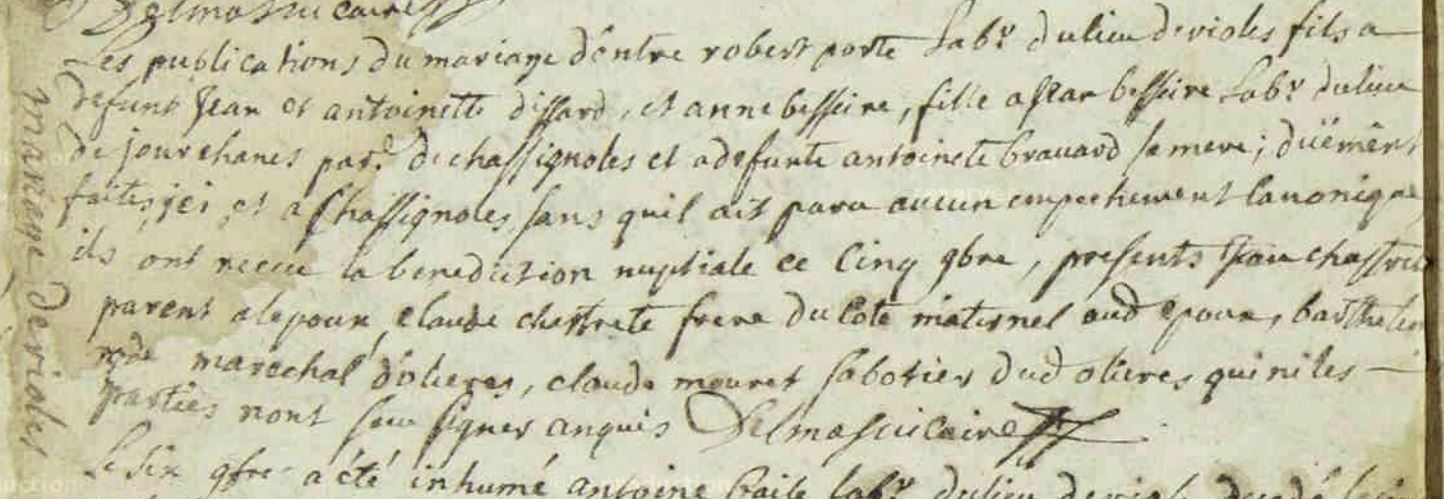 Delmas vicaire
Les publications du mariage d'entre robert porte Labr du lieu de violes fils a
defunt Jean et antoinette dissard, et anne besseire, fille a Jean besseire Labr du lieu
de jourchanes par. de chassignoles et a defunte antoinete brauard sa mere; düëment
faites, jci et a Chassignoles, sans quil ait paru aucun empechement Canonique
ils ont recue la benediction nuptiale ce Cinq 9bre, presents Jean
parent a lepoux, claude frere du Coté maternel aud epoux,
marechal d'olieres, claude mouret sabotier dud olieres qui ni les
parties nont sceu signer anquis Delmas vicaire
Le six 9bre a été inhumé antoine Labr du lieu
mariage de violes